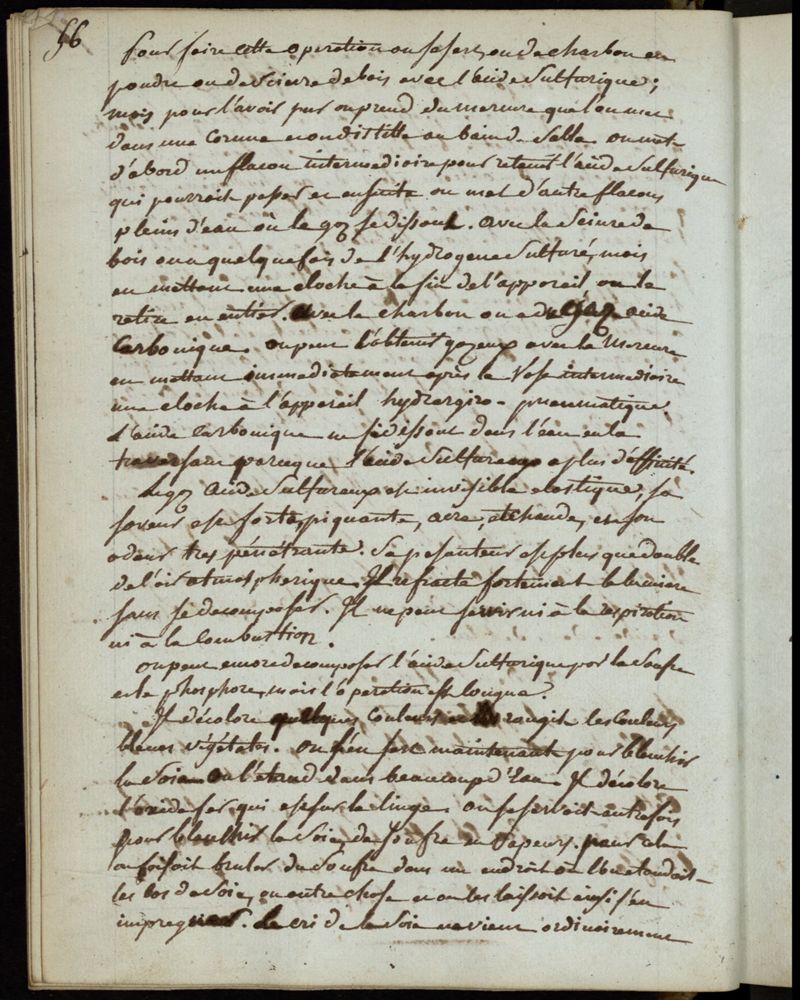 56
Pour faire cette operation on se sert, ou de charbon en
poudre ou de Scieure de bois avec l'acide Sulfurique;
mais pour l'avoir pur on prend du mercure que l'on met
dans une Cornue et on distille au bain de Sable. on met
d'abord un flacon intermediaire pour retenir l'acide Sulfurique
qui pourroit passer et ensuite on met d'autre flacons
pleins d'eau où le gaz se dissout. avec la Scieure de
bois on a quelquefois de l'hydrogene Sulfuré, mais
en mettant une cloche à la fin de l'appareil on le
retire en entier. Avec le charbon on a du gaz acide
Carbonique. on peut l'obtenir gazeux avec le Mercure
en mettant immediatement après le Vase intermediaire
une cloche à l'appareil hydrargiro-pneumatique.
L'acide Carbonique ne se dissout dans l'eau en la
traversant parceque l'acide Sulfureux a plus d'affinité.
Le gaz acide Sulfureux est invisible elastique, sa
saveur est forte, piquante, acre, et chaude, et son
odeur tres pénétrante. Sa pesanteur est plus que double
de l'air atmospherique. Il refracte fortement la lumiere
sans se decomposer. Il ne peut servir ni à la respiration
ni à la Combustion.
on peut encore decomposer l'acide Sulfurique par le Soufre
et le phosphore, mais l'operation est longue.
Il décolore quelques Couleurs et rougit les Couleurs
bleues végétales. on s'en sert maintenant pour blanchir
la Soie. on l'étend dans beaucoup d'Eau. Il décolore
l'oxide de fer qui est sur le linge. on se servoit autrefois
pour blanchir la Soie, de Soufre en Vapeurs. pour cela
on faisoit bruler du Soufre dans un endroit où l'on etendoit
les bas de Soie, ou autre chose et on les laissoit ainsi s'en
impregner. Le cri de la Soie ne vient ordinairement